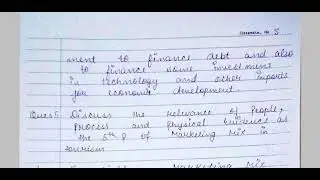 5
ment to finance debt and also
to finance some investment
in technology and other imports
for economic development.
Ques5 Discuss the relevance of People,
Process and physical evidence as
the 5th P of Marketing Mix in
tourism
Marketing Mix